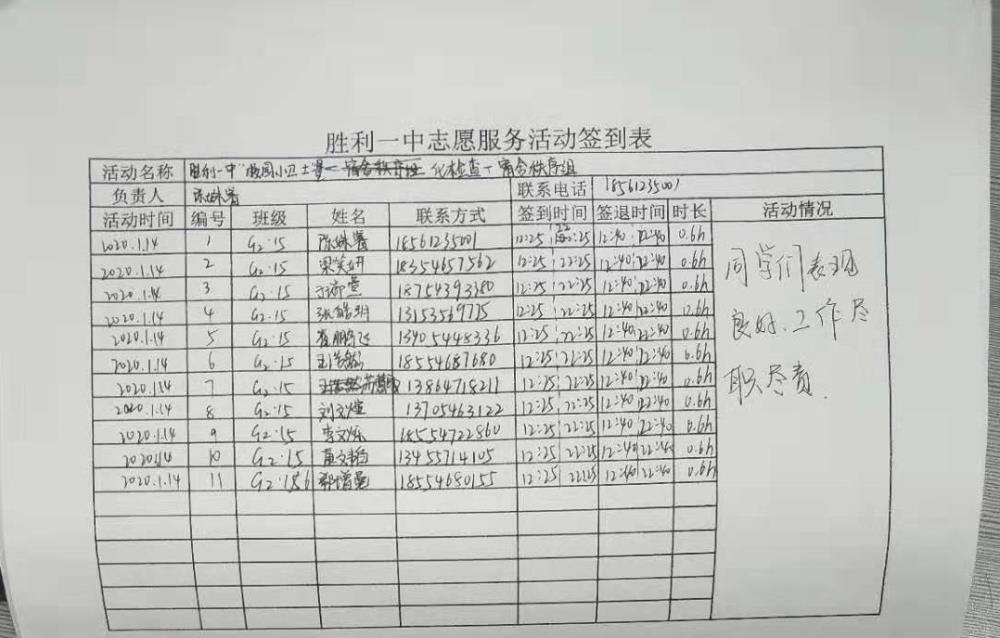 胜利一中志愿服务活动签到表
活动名称 胜利一中"校园小卫士 检查-宿舍秩序组
负责人 联系电话 18561235001
活动时间 编号 班级 姓名 联系方式 签到时间 签退时间 时长 活动情况
2020.1.14 1 G2.15 18561235001 12:25 22:25 12:40 22:40 0.6h
2020.1.14 2 G2.15 梁笑妍 18354657562 12:25 22:25 12:40 22:40 0.6h
2020.1.14 3 G2.15 18754393380 12:25 22:25 12:40 22:40 0.6h
2020.1.14 4 G2.15 张皓玥 13153569775 12:25 22:25 12:40 22:40 0.6h
2020.1.14 5 G2.15 崔鹏飞 13405448336 12:25 22:25 12:40 22:40 0.6h
2020.1.14 6 G2.15 18554687680 12:25 22:25 12:40 22:40 0.6h
2020.1.14 7 G2.15 13864718211 12:25 22:25 12:40 22:40 0.6h
2020.1.14 8 G2.15 刘文煊 13705463122 12:25 22:25 12:40 22:40 0.6h
2020.1.14 9 G2.15 李文烁 18554722860 12:25 22:25 12:40 22:40 0.6h
2020.1.14 10 G2.15 13455714105 12:25 22:25 12:40 22:40 0.6h
2020.1.14 11 18554680155 12:25 22:25 12:40 22:40 0.6h
同学们表现
良好、工作尽
职尽责.